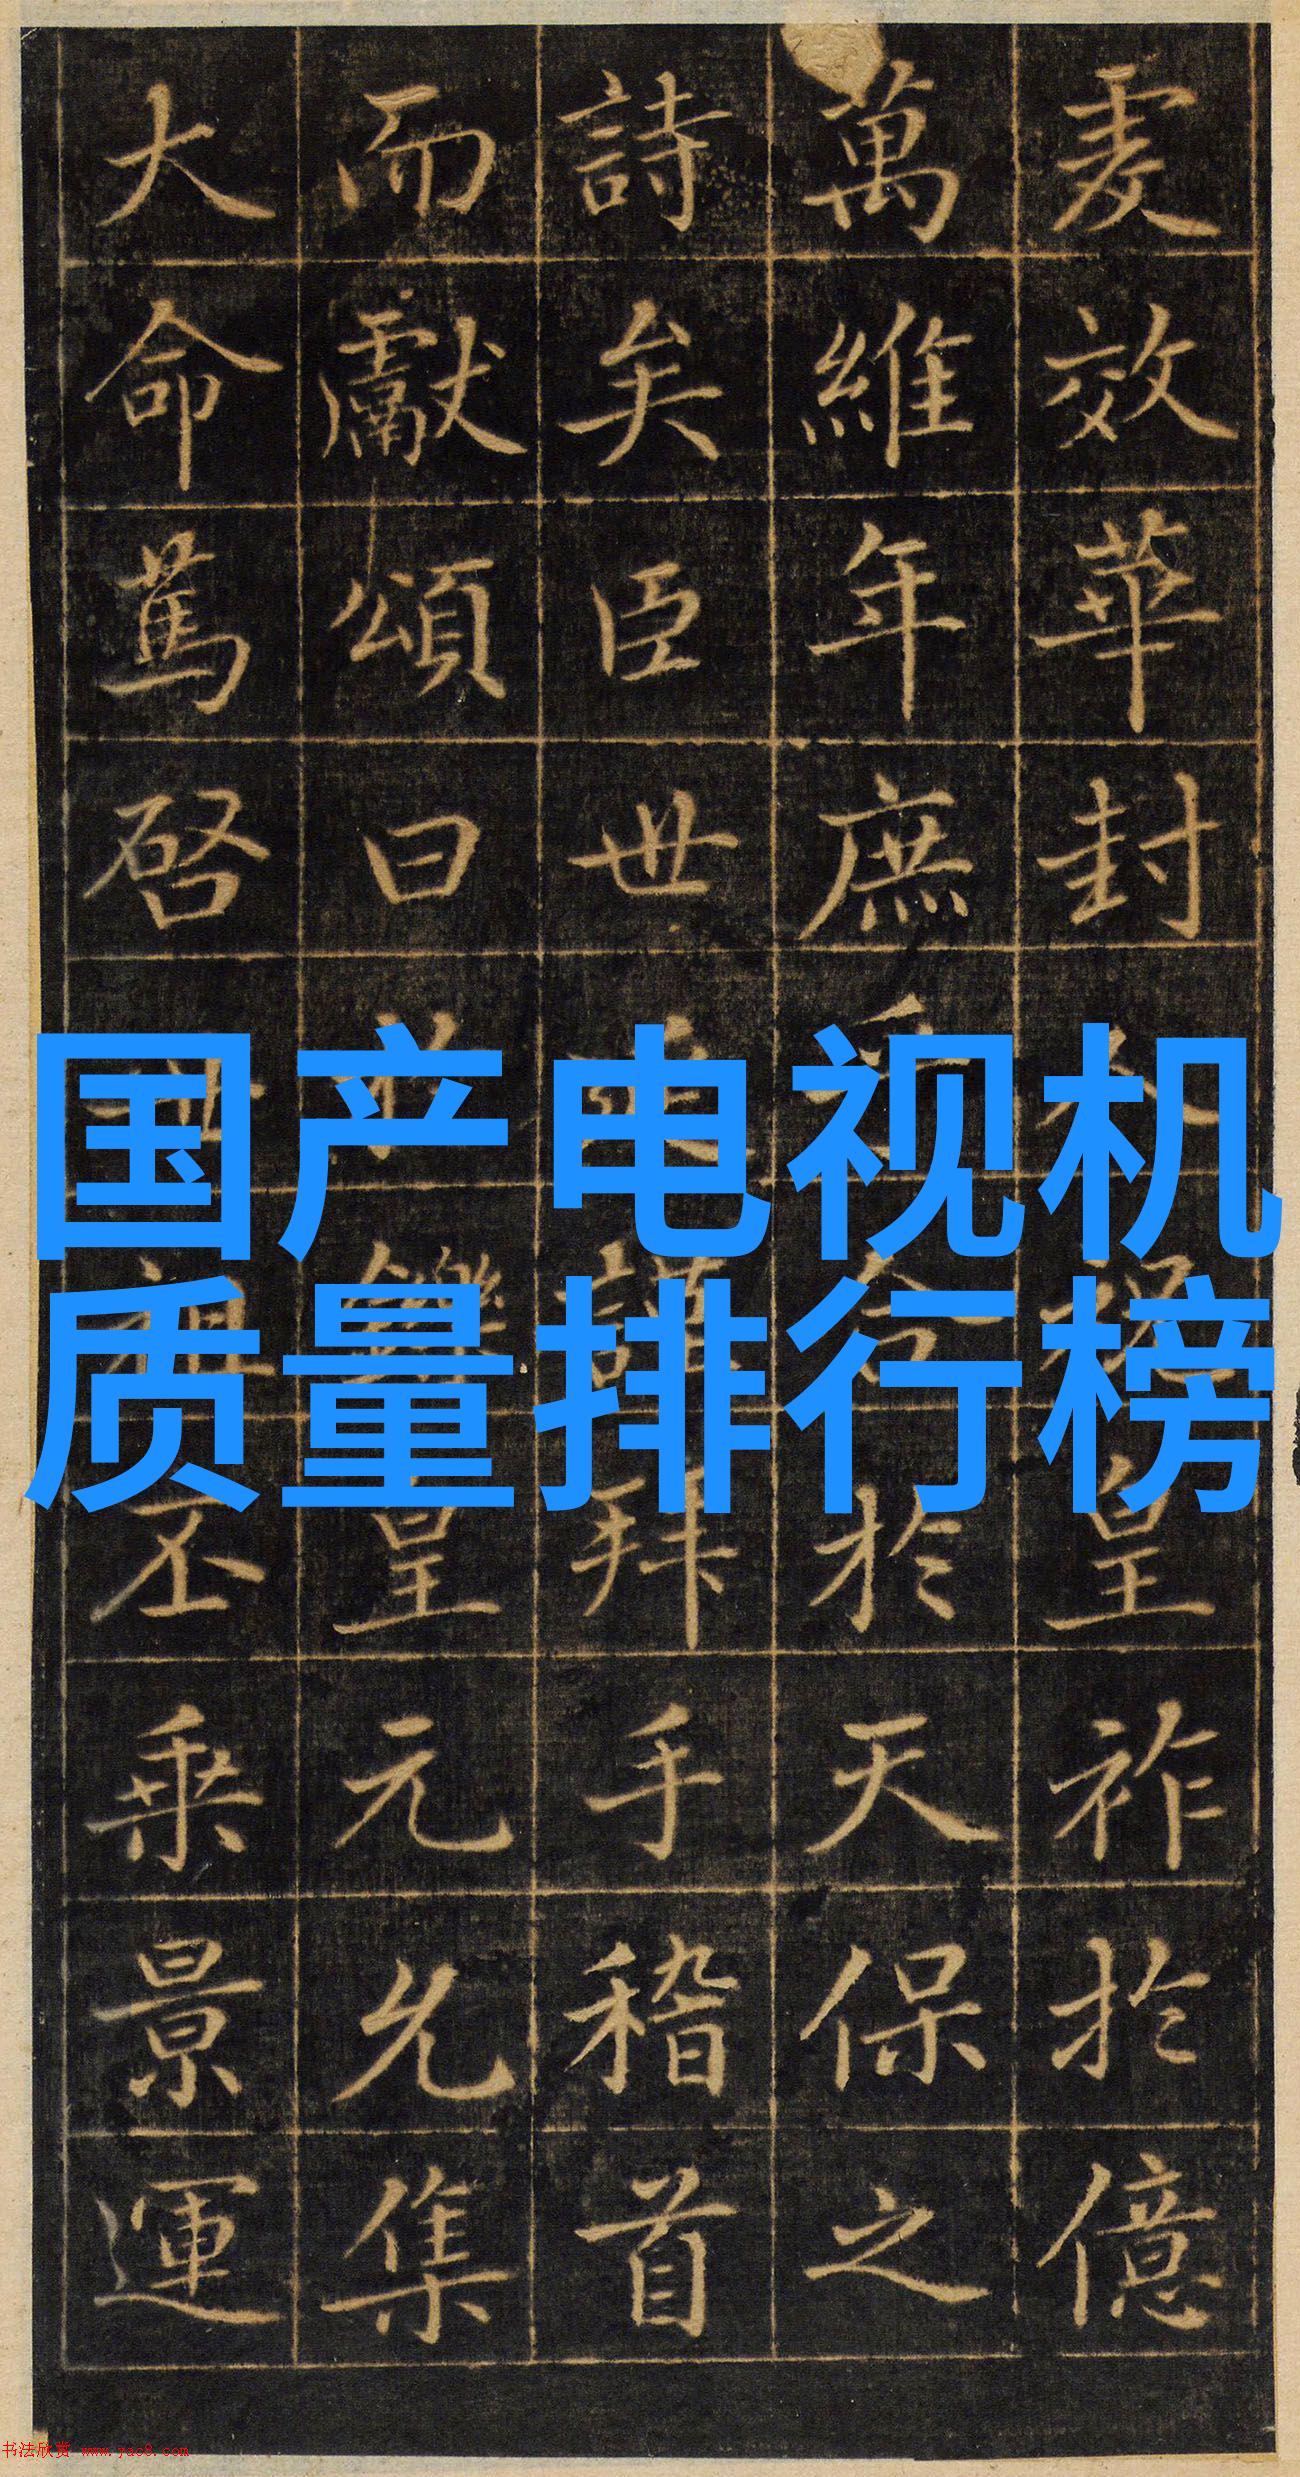 爰效華封人祝皇祚於億
萬維年庶乎合於天保之
詩矣臣世謹拜手稽首
而獻頌曰於鑠皇元允集
大命篤啓世祖丕乘景運
国产电视机
质量排行榜
书法欣赏 www.yac8.com